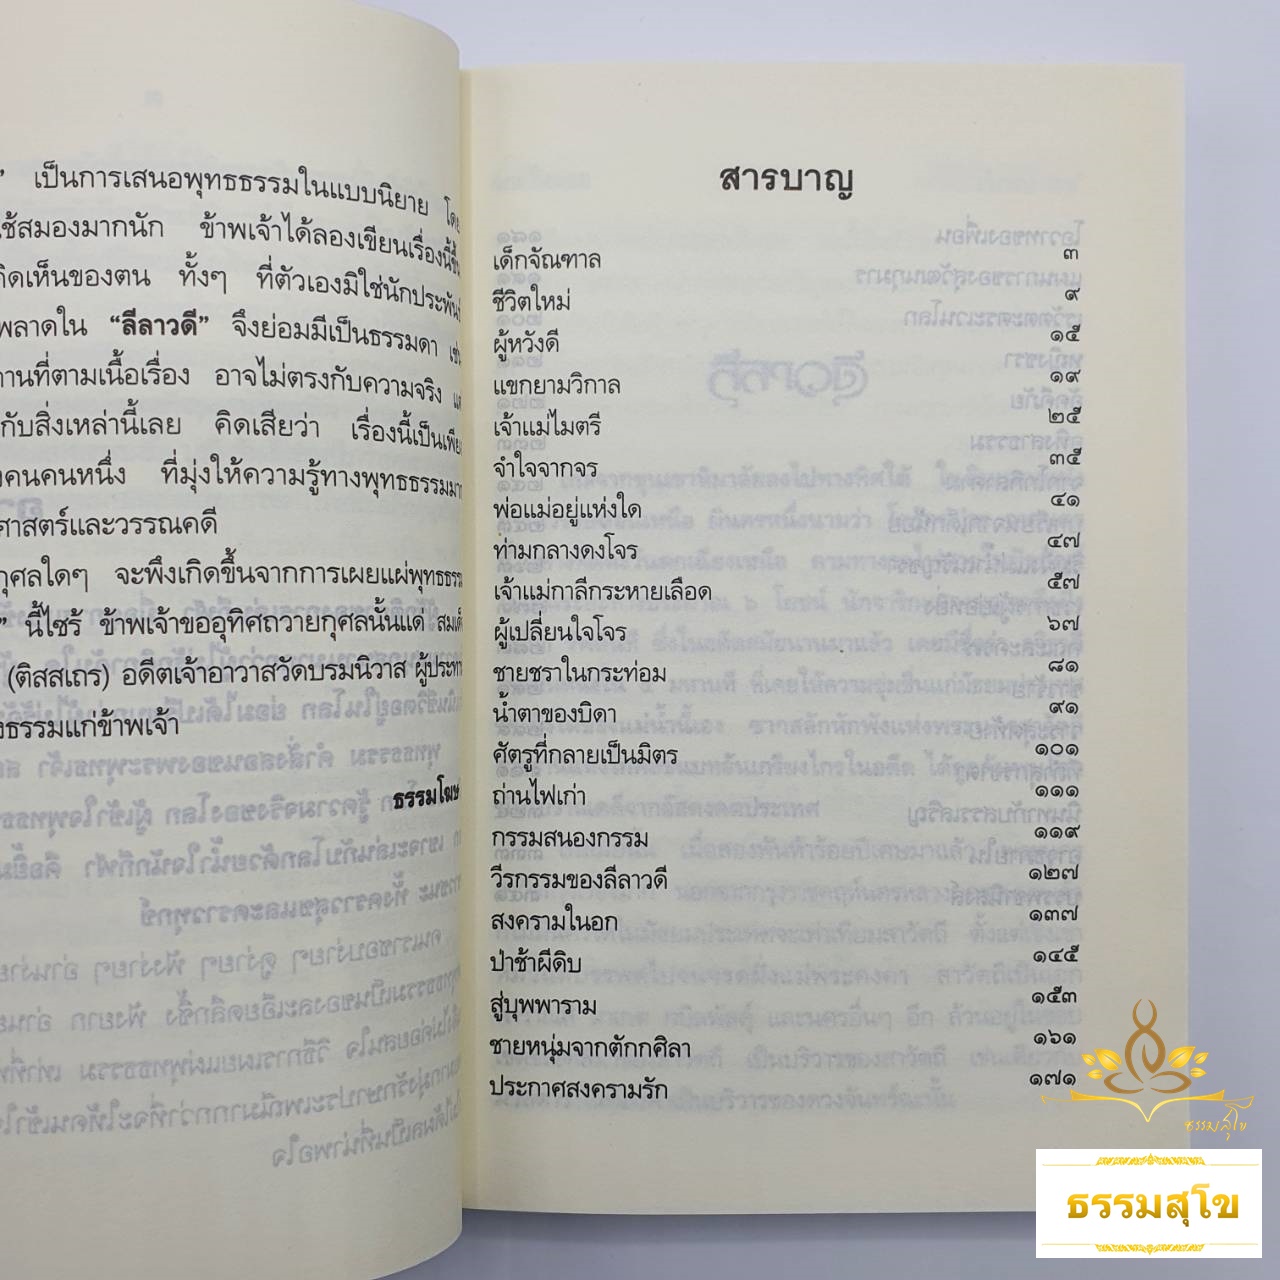 ” เป็นการเสนอพุทธธรรมในแบบนิยาย โดย
ใช้สมองมากนัก ข้าพเจ้าได้ลองเขียนเรื่องนี้ขึ้น
คิดเห็นของตน ทั้งๆ ที่ตัวเองมิใช่นักประพันธ์
พลาดใน “ลีลาวดี” จึงย่อมมีเป็นธรรมดา เช่น
านที่ตามเนื้อเรื่อง อาจไม่ตรงกับความจริง
กับสิ่งเหล่านี้เลย คิดเสียว่า เรื่องนี้เป็นเพีย
งคนคนหนึ่ง ที่มุ่งให้ความรู้ทางพุทธธรรมมาก
ศาสตร์และวรรณคดี
กุศลใดๆ จะพึงเกิดขึ้นจากการเผยแผ่พุทธธรรม
” นี้ไซร้ ข้าพเจ้าขออุทิศถวายกุศลนั้นแด่ สมเด็
(ติสสเถร) อดีตเจ้าอาวาสวัดบรมนิวาส ผู้ประทา
งธรรมแก่ข้าพเจ้า
ธรรมโฆษ
สารบาญ
เด็กจัณฑาล ๓
ชีวิตใหม่ ๙
ผู้หวังดี ๑๕
แขกยามวิกาล ๑๙
เจ้าแม่ไมตรี ๒๕
จำใจจากจร ๓๕
พ่อแม่อยู่แห่งใด ๔๑
ท่ามกลางดงโจร ๔๗
เจ้าแม่กาลีกระหายเลือด ๕๗
ผู้เปลี่ยนใจโจร ๖๗
ชายชราในกระท่อม ๘๑
น้ำตาของบิดา ๙๑
ศัตรูที่กลายเป็นมิตร ๑๐๑
ถ่านไฟเก่า ๑๑๑
กรรมสนองกรรม ๑๑๙
วีรกรรมของลีลาวดี ๑๒๗
สงครามในอก ๑๓๗
ป่าช้าผีดิบ ๑๔๕
สู่บุพพาราม ๑๕๓
ชายหนุ่มจากตักกศิลา ๑๖๑
ประกาศสงครามรัก ๑๗๑
ธรรมสุโข
ธรรมสุโข